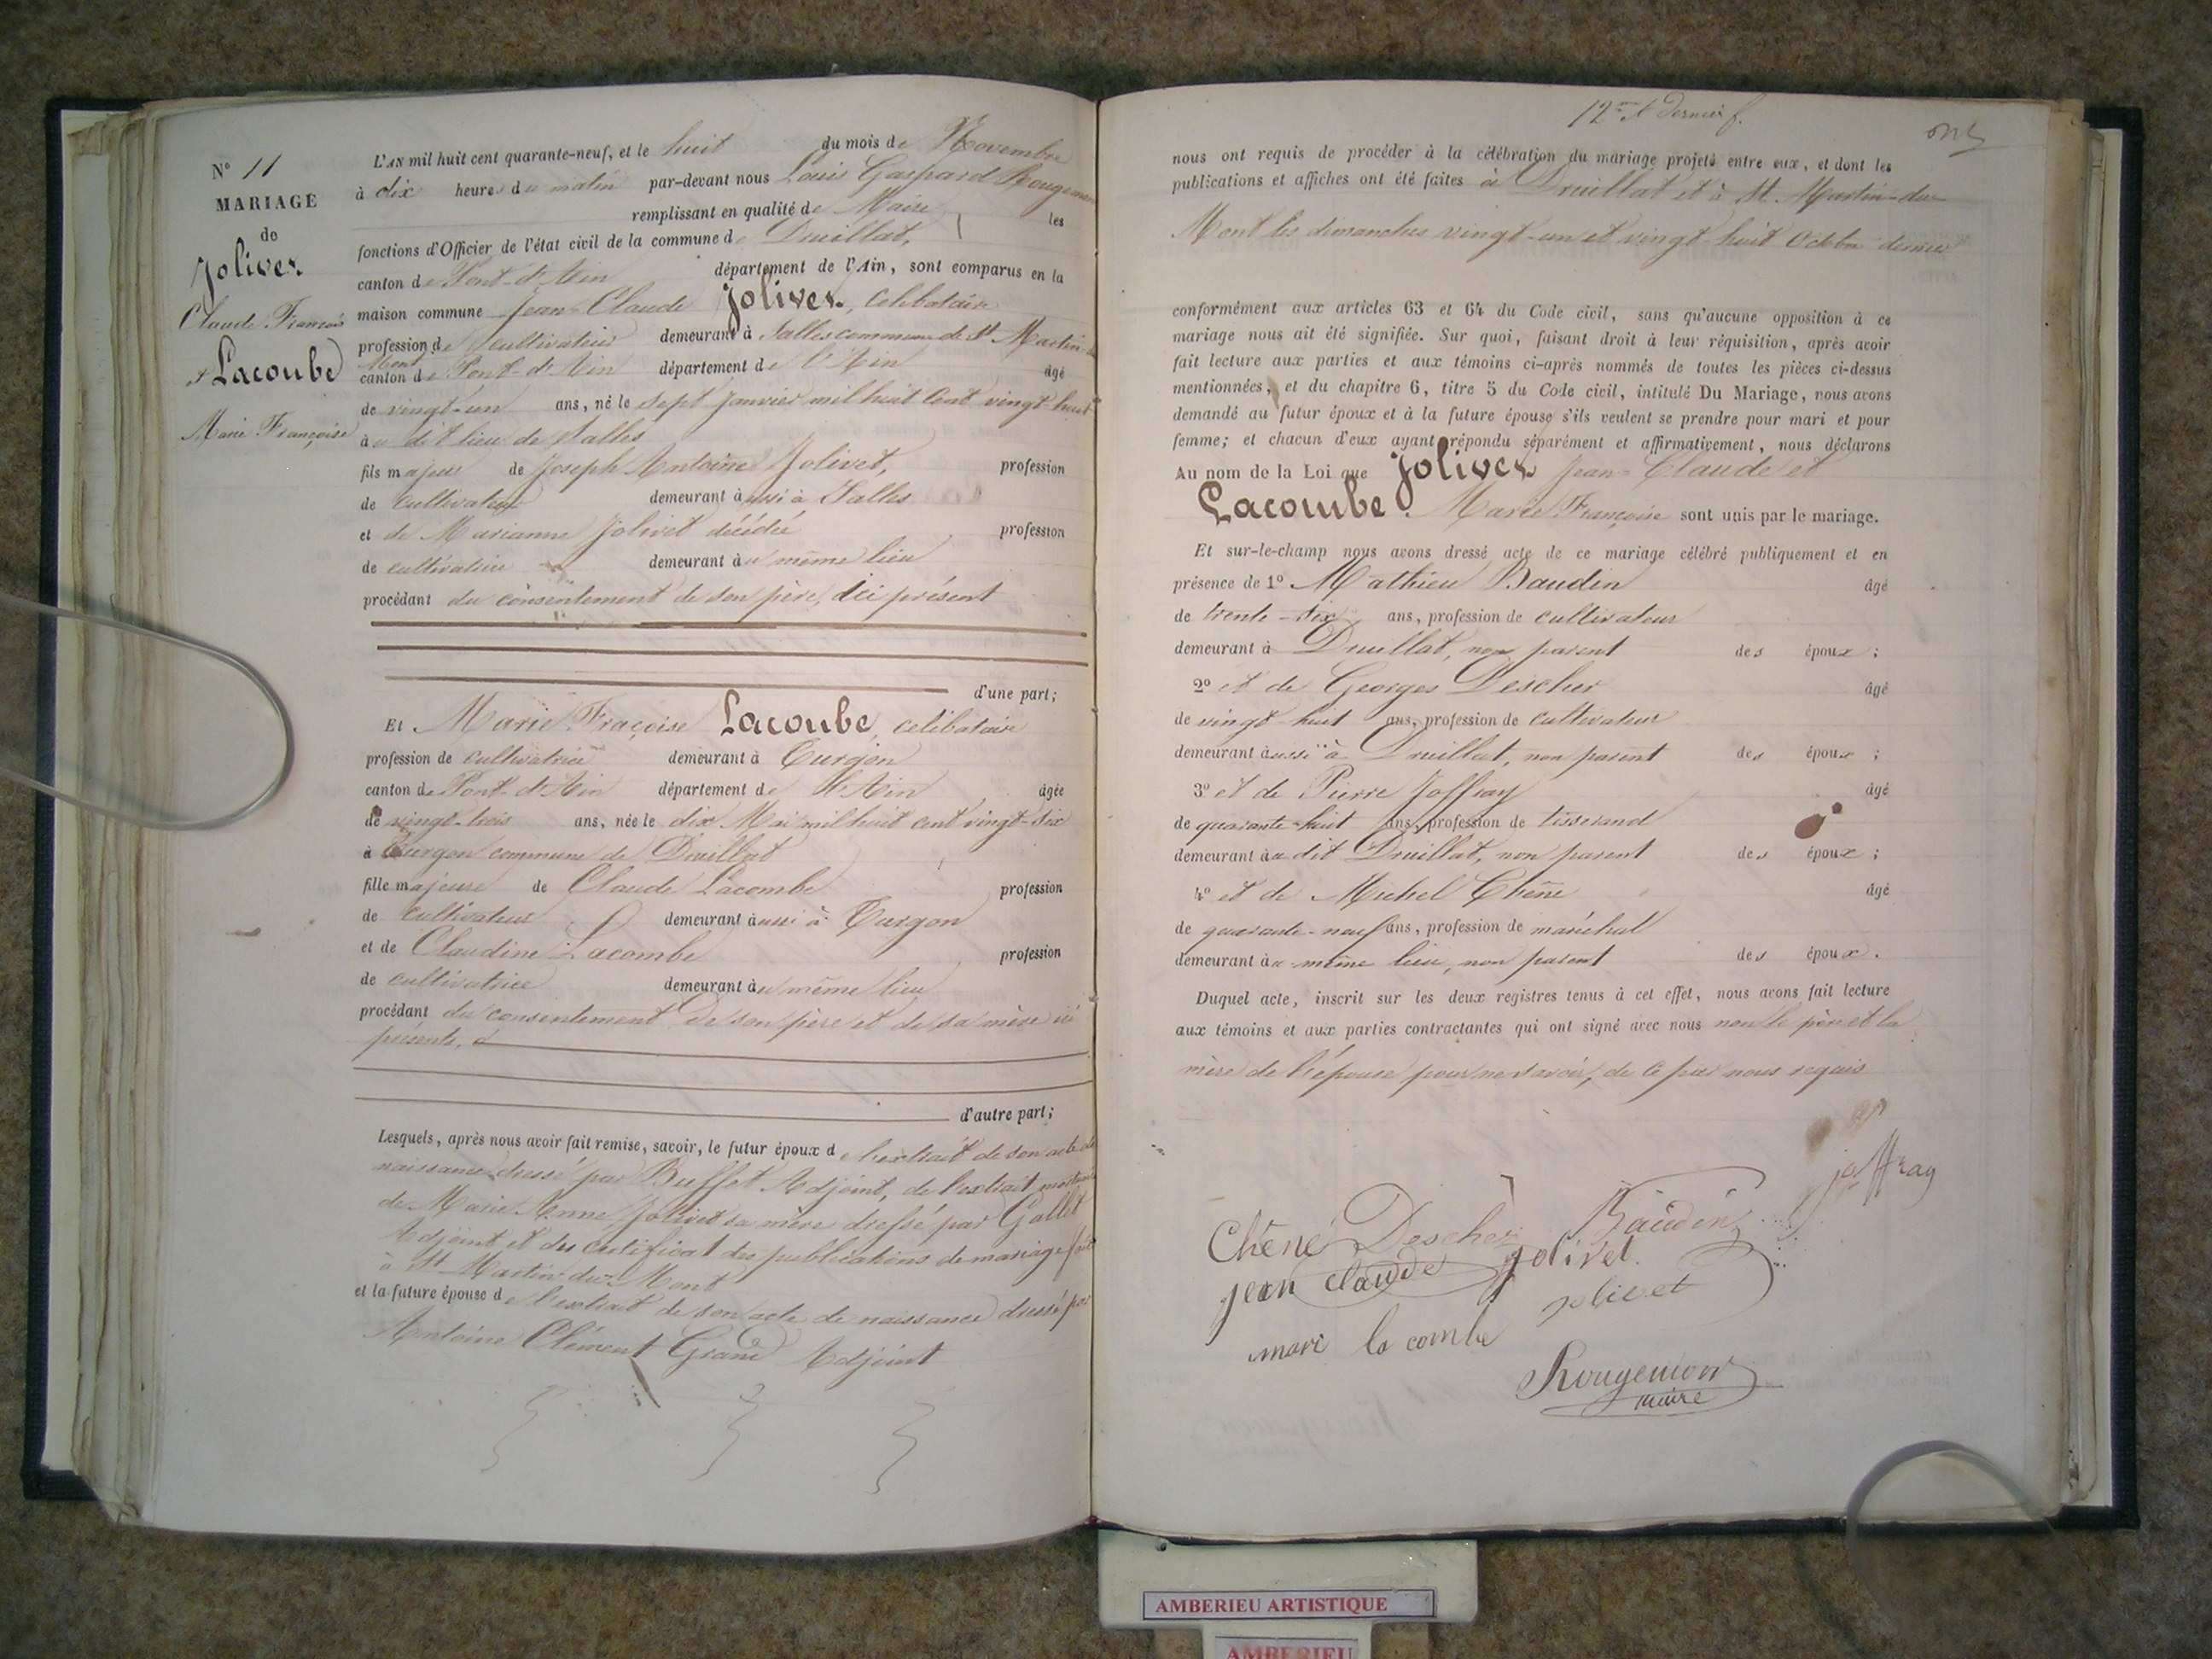 N° 11
MARIAGE
de
Jolivet
Claude François
et Lacoube
Marie Françoise
L'AN mil huit cent quarante-neuf, et le huit du mois de Novembre
à dix heures du matin par-devant nous Louis Gaspard Rougemont
remplissant en qualité de Maire les
fonctions d'Officier de l'état civil de la commune de Druillat,
canton de Pont-d'Ain département de l'Ain, sont comparus en la
maison commune Jean-Claude Jolivet, célibataire
profession de cultivateur demeurant à Salles commune de St Martin du
Mont
canton de Pont-d'Ain département de l'Ain âgé
de vingt-un ans, né le sept Janvier mil huit cent vingt-huit
à u dit lieu de Salles
fils majeur de Joseph Antoine Jolivet, profession
de cultivateur demeurant aussi à Salles
et de Marianne Jolivet décédée profession
de cultivatrice demeurant au même lieu
procédant du consentement de son père, ici présent
d'une part;
Et Marie Fraçoise Lacoube, célibataire
profession de cultivatrice demeurant à Turgon
canton de Pont-d'Ain département de l'Ain âgée
de vingt-trois ans, née le dix Mai mil huit cent vingt-six
à Turgon commune de Druillat
fille majeure de Claude Lacombe profession
de cultivateur demeurant aussi à Turgon
et de Claudine Lacombe profession
de cultivatrice demeurant au même lieu
procédant du consentement de son père et de sa mère ici
présents,
d'autre part;
Lesquels, après nous avoir fait remise, savoir, le futur époux de l'extrait de son acte de
naissance dressé par Buffet Adjoint, de l'extrait mortuaire
de Marie Anne Jolivet sa mère dressé par Gallet
Adjoint et du certificat des publications de mariage fait
à St Martin-du-Mont
et la future épouse de l'extrait de son acte de naissance dressé par
Antoine Clément Grand Adjoint
12me et dernier f.
nous ont requis de procéder à la célébration du mariage projeté entre eux, et dont les
publications et affiches ont été faites à Druillat et à St. Martin-du-
Mont les dimanches vingt-un et vingt-huit Octobre dernier
conformément aux articles 63 et 64 du Code civil, sans qu'aucune opposition à ce
mariage nous ait été signifiée. Sur quoi, faisant droit à leur réquisition, après avoir
fait lecture aux parties et aux témoins ci-après nommés de toutes les pièces ci-dessus
mentionnées, et du chapitre 6, titre 5 du Code civil, intitulé Du Mariage, nous avons
demandé au futur époux et à la future épouse s'ils veulent se prendre pour mari et pour
femme; et chacun d'eux ayant répondu séparément et affirmativement, nous déclarons
Au nom de la Loi que Jolivet Jean-Claude et
Lacoumbe Marie Françoise sont unis par le mariage.
Et sur-le-champ nous avons dressé acte de ce mariage célébré publiquement et en
présence de 1° Mathieu Baudin âgé
de trente-six ans, profession de cultivateur
demeurant à Druillat, non parent des époux;
2° et de Georges Descher âgé
de vingt-huit ans, profession de cultivateur
demeurant aussi à Druillat, non parent des époux;
3° et de Pierre Joffray âgé
de quarante-huit ans, profession de tisserand
demeurant au dit Druillat, non parent des époux;
4° et de Michel Chêne âgé
de quarante-neuf ans, profession de maréchal
demeurant au même lieu, non parent des époux.
Duquel acte, inscrit sur les deux registres tenus à cet effet, nous avons fait lecture
aux témoins et aux parties contractantes qui ont signé avec nous non le père et la
mère de l'épouse pour ne savoir, de ce par nous requis
joffray
Chêne Descher Baudin
jean claude jolivet
jolivet
mari la combe
Rougemont
maire
AMBERIEU ARTISTIQUE
AMBERIEU